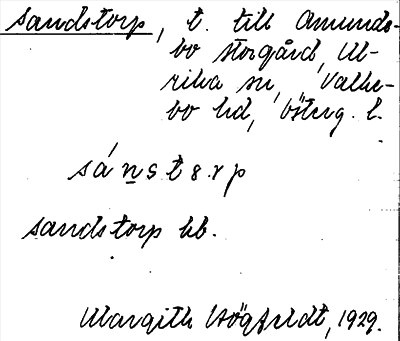 Sandstorp, t. till Amunds-
bo storgård, Ul-
rika sn, Valke-
bo hd, Österg. l.
sá n s t 8. r p
Sandstorp kb.
Margith Högfeldt, 1929.